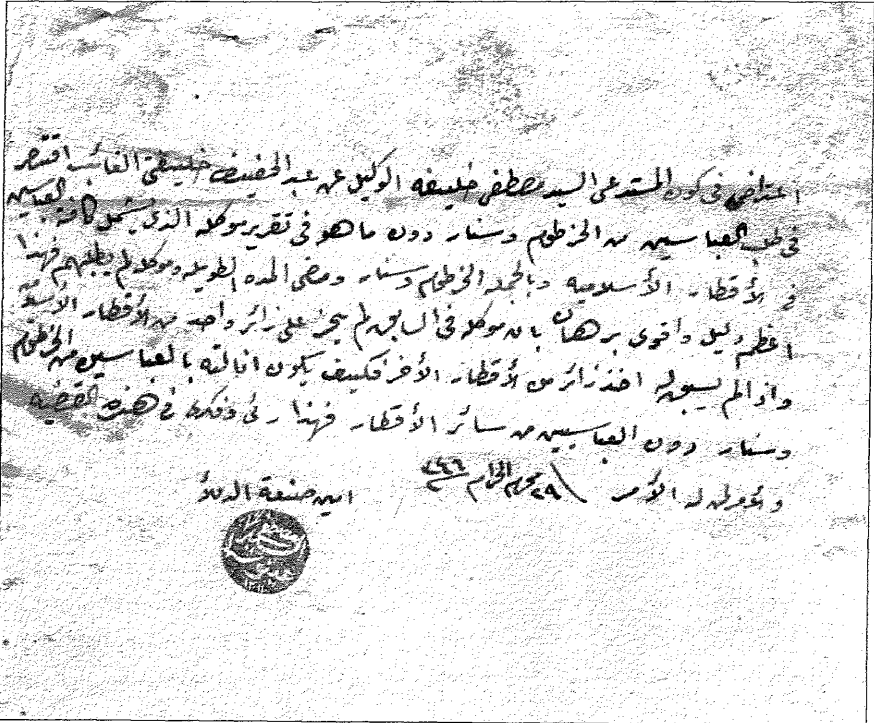 اعتراضي في كون المستدعى السيد مصطفى خليفه الوكيل عن عبد الحفيظ خليفتي الغائب اقتصر
في طلب العباسيين من الخرطوم وسنار دون ما هو في تقرير موكله الذي يشمل كافة العباسيين
في الأقطار الأسلاميه وبالجمله الخرطوم وسنار ومضى المده الطويله وموكله لم يطلبهم فهذا
اعظم دليل واقوى برهان بان موكله في السابق لم يحز على زائر واحد من الأقطار
واذا لم يسبق له اخذ زائر من الأقطار الأخر فكيف يكون اناله بالعباسيين من الخرطوم
وسنار دون العباسيين من سائر الأقطار فهذا رئى وفكرى في هذه القضيه
والأمر لمن له الأمر ٢٩ محرم الحرام
امين صنعة الدلأ